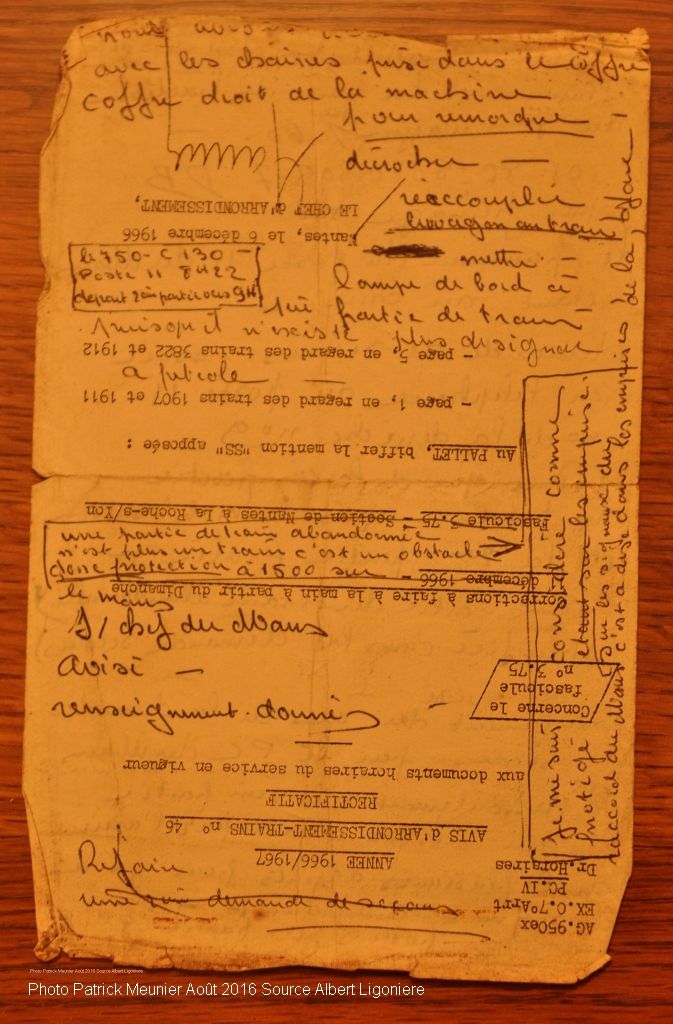 avec les chaines prise dans le coffre
coffre droit de la machine
pour remorque
décrocher —
réaccoupler
le wagon au train
mettre —
lampe de bord à
1ère partie de train —
puisqu'il n'existe plus de signal
a pétrole —
le 750 - C 130 -
Poste 11 8H22
depart 2èm partie vers 9H
une partie de train abandonnée
n'est plus un train c'est un obstacle
donc protection à 1500 sur
le mans
S/ chef du Mans
avisé —
renseignement donnés —
Refaire
une demande de secours
Je me suis considéré comme
protégé étant sur les emprises
sur les signaux du
raccord du Mans c'est a dire dans les emprises de la
AG.950ex
EX. C.7°Arrt
PC.IV
Dr.Horaires
ANNEE 1966/1967
AVIS d'ARRONDISSEMENT-TRAINS n° 46
RECTIFICATIF
aux documents horaires du service en vigueur
Concerne le
fascicule
n° 3.75
Corrections à faire à la main à partir du Dimanche
décembre 1966 -
Fascicule 3.75 - Section de Nantes à La Roche-s/Yon
Au PALLET, biffer la mention "SS" apposée :
- page 1, en regard des trains 1907 et 1911
- page 5, en regard des trains 3822 et 1912
Nantes, le 6 décembre 1966
LE CHEF d'ARRONDISSEMENT,
Photo Patrick Meunier Août 2016 Source Albert Ligoniere
Photo Patrick Meunier Août 2016 Source Albert Ligoniere